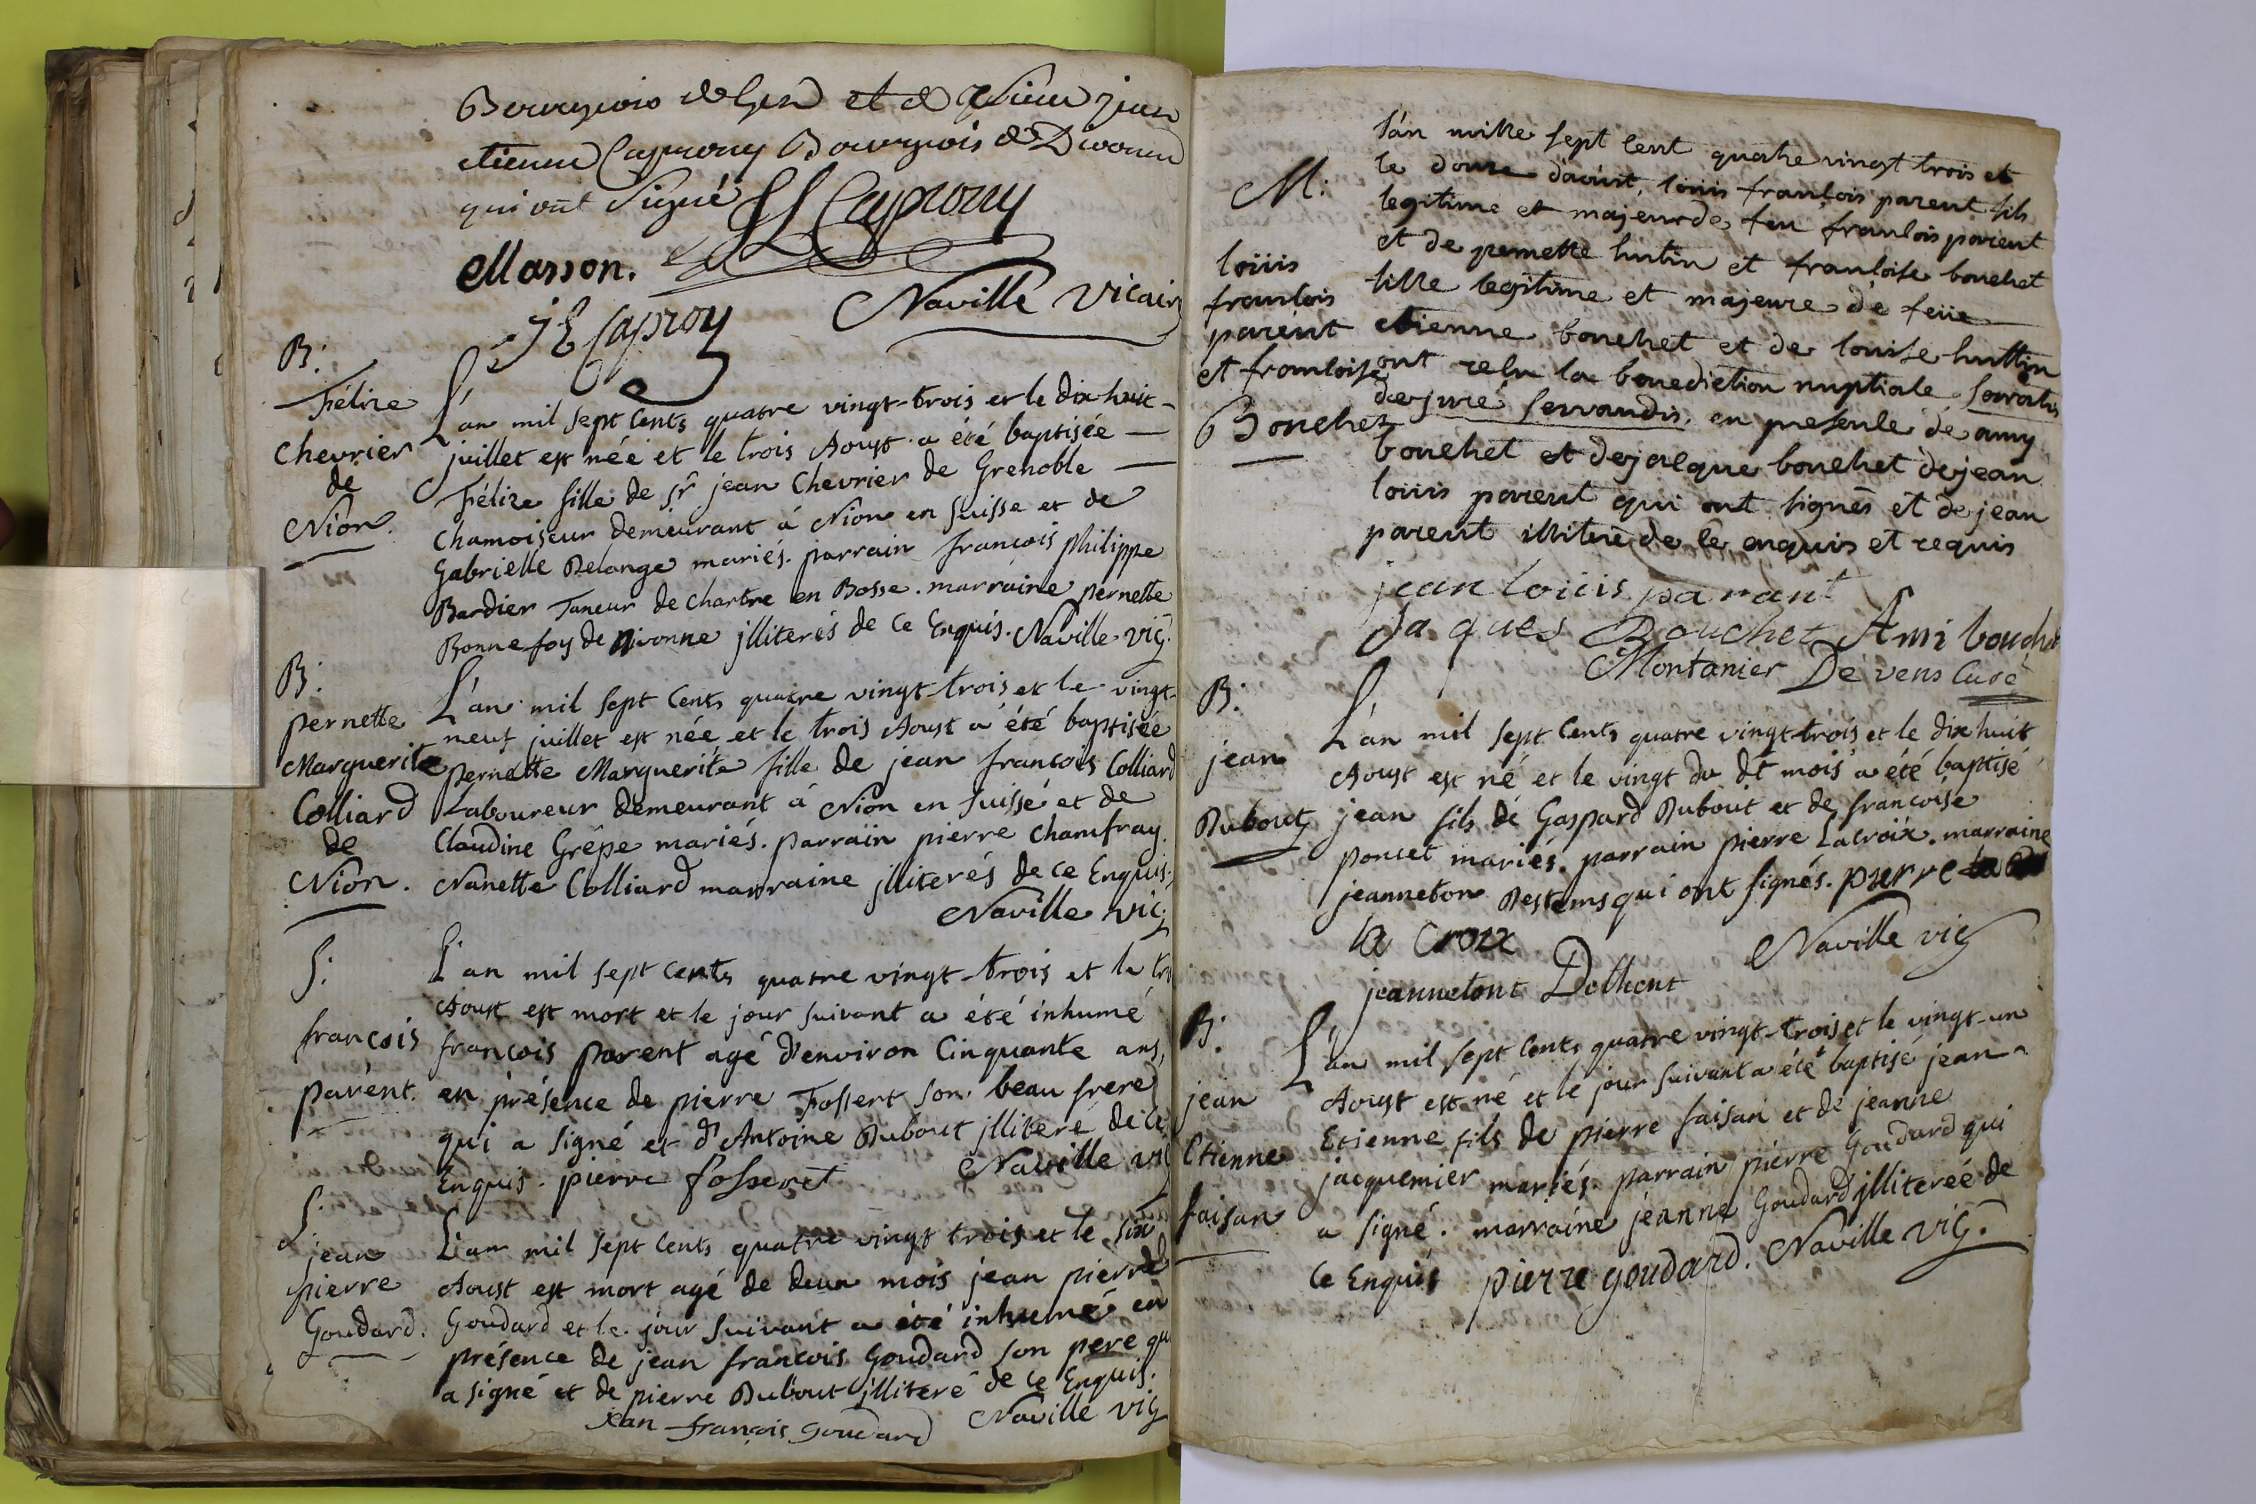 Bourgeois de Gex et de Sieur jean
etienne Caprony Bourgeois de Divonne
qui ont Signé LL Caprony
Masson.
JE Caprony
Naville Vicaire
B:
Félize
Chevrier
de
Nion.
L'an mil sept Cents quatre vingt-trois et le dix huit
juillet est née et le trois Aoust a été baptisée
Félize fille de sr jean Chevrier de Grenoble
Chamoiseur demeurant á Nion en suisse et de
Gabrielle Delange mariés. parrain françois philippe
Bardier Taneur de Chartre en Bosse. marraine pernette
Bonnefoy de Divonne jlliterés de Ce Enquis. Naville vic.
B:
pernette
Marguerite
Colliard
de
Nion.
L'an mil sept Cents quatre vingt-trois et le vingt-
neuf juillet est née et le trois Aoust a été baptisée
pernette Marguerite fille de jean françois Colliard
Laboureur demeurant á Nion en suisse et de
Claudine Grêpe mariés. parrain pierre Chamfray.
Nanette Colliard marraine jlliterés de ce Enquis.
Naville vic.
S:
françois
parent.
L'an mil sept Cents quatre vingt-trois et le
Aoust est mort et le jour suivant a été inhumé
françois parent agé d'environ Cinquante ans,
en présence de pierre Fossert son beau frere
qui a signé et d'Antoine Dubout jlliteré de Ce
Enquis. pierre fosseret Naville vic
S:
jean
pierre
Goudard.
L'an mil sept Cents quatre vingt trois et le six
Aoust est mort agé de deux mois jean pierre
Goudard et le jour suivant a été inhumé en
présence de jean françois Goudard son pere qui
a signé et de pierre Dubout jlliteré de Ce Enquis.
jean françois Goudard Naville vic
M:
louis
francois
parent
et francoise
Bouchet
l'an mille sept cent quatre vingt trois et
le douze d'aoust, louis francois parent fils
legitime et majeur de feu francois parent
et de pernette hutin et francoise bouchet
fille legitime et majeure de feüe
etienne bouchet et de louise huttin
ont reçu la benediction nuptiale servatis
de jure servandis, en presence de amy
bouchet et de jacque bouchet de jean
louis parent qui ont signés et de jean
parent illitiré de ce enquis et requis
jean loüis parant
Jaques Bouchet Ami bouchet
Montanier De vens Curé
B:
jean
Dubout
L'an mil sept Cents quatre vingt-trois et le dix huit
Aoust est né et le vingt du dt mois a été baptisé
jean fils de Gaspard Dubout et de françoise
poncet mariés. parrain pierre Lacroix. marraine
jeanneton Destems qui ont signés. pierre
la Croix
Naville vic
jeannetont
B:
jean
Etienne
faisan
L'an mil sept Cents quatre vingt-trois et le vingt-un
Aoust est né et le jour suivant a été baptisé jean
Etienne fils de pierre faisan et de jeanne
jacquemier mariés. parrain pierre Goudard qui
a signé. marraine jeanne Goudard jlliterée de
Ce Enquis pierre goudard. Naville vic.